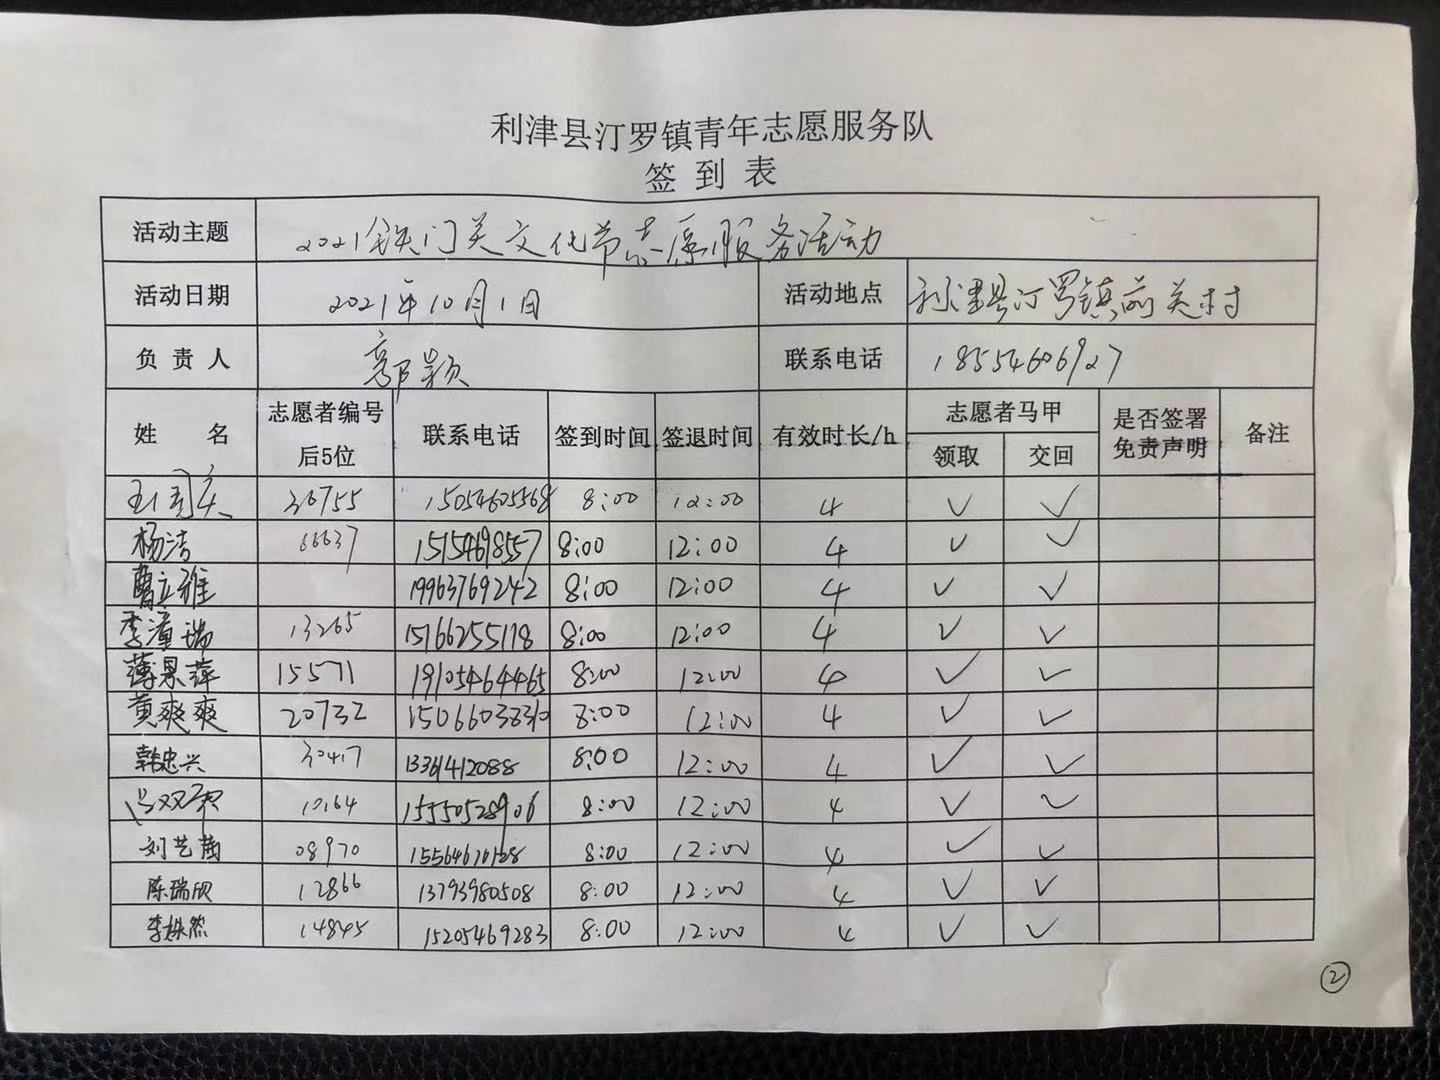 利津县汀罗镇青年志愿服务队
签到表
活动主题 2021铁门关文化节志愿服务活动
活动日期 2021年10月1日 活动地点 利津县汀罗镇前关村
负责人 鄢颖 联系电话 18554606927
姓名 志愿者编号后5位 联系电话 签到时间 签退时间 有效时长/h 志愿者马甲 领取 交回 是否签署免责声明 备注
36755 15054605568 8:00 12:00 4 ✓ ✓
杨洁 66637 15154698557 8:00 12:00 4 ✓ ✓
曹立雅 19963769242 8:00 12:00 4 ✓ ✓
李潼瑞 13265 15166255118 8:00 12:00 4 ✓ ✓
薄景萍 15571 19105464465 8:00 12:00 4 ✓ ✓
黄爽爽 20732 15066038310 8:00 12:00 4 ✓ ✓
韩忠兴 30417 13361412088 8:00 12:00 4 ✓ ✓
10164 15550528906 8:00 12:00 4 ✓ ✓
刘艺菡 08970 8:00 12:00 4 ✓ ✓
陈瑞欣 12866 13793980508 8:00 12:00 4 ✓ ✓
李姝然 14845 15205469283 8:00 12:00 4 ✓ ✓
②